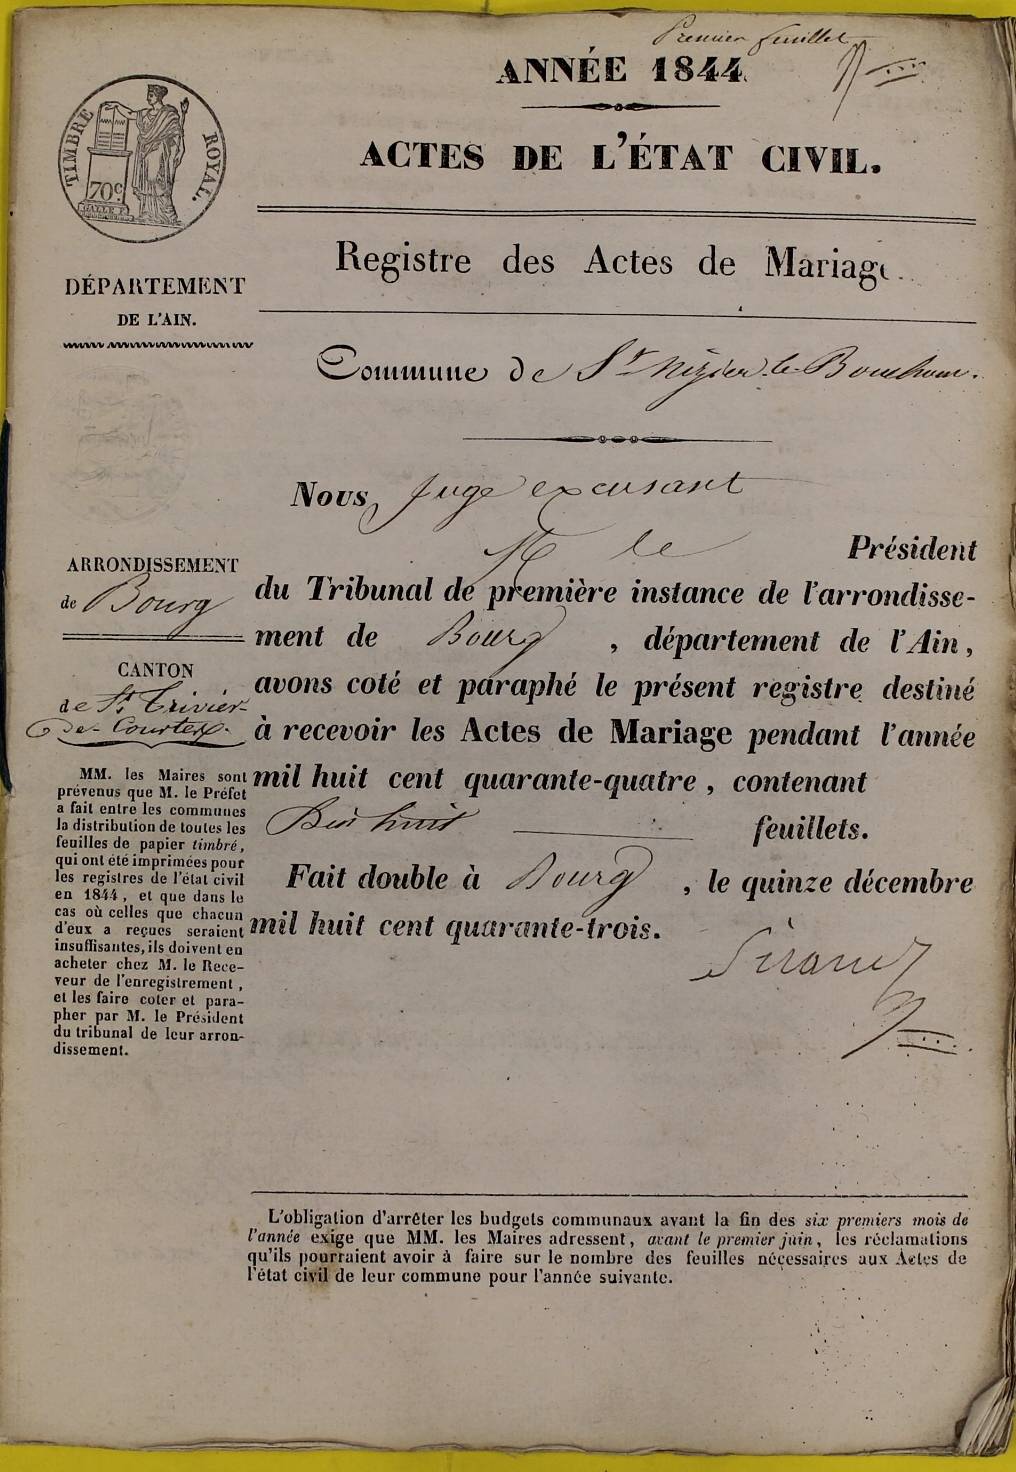 Premier feuillet
ANNÉE 1844.
ACTES DE L'ÉTAT CIVIL.
TIMBRE ROYAL.
70c
Registre des Actes de Mariage.
DÉPARTEMENT
DE L'AIN.
Commune de St Nizier-le-Bouchoux.
Nous, Juge excusant
M le Président
ARRONDISSEMENT
de Bourg
CANTON
de St Trivier-
de-Courtes.
du Tribunal de première instance de l'arrondisse-
ment de Bourg, département de l'Ain,
avons coté et paraphé le présent registre destiné
à recevoir les Actes de Mariage pendant l'année
mil huit cent quarante-quatre, contenant
Dix huit feuillets.
Fait double à Bourg, le quinze décembre
mil huit cent quarante-trois.
MM. les Maires sont
prévenus que M. le Préfet
a fait entre les communes
la distribution de toutes les
feuilles de papier timbré,
qui ont été imprimées pour
les registres de l'état civil
en 1844, et que dans le
cas où celles que chacun
d'eux a reçues seraient
insuffisantes, ils doivent en
acheter chez M. le Rece-
veur de l'enregistrement,
et les faire coter et para-
pher par M. le Président
du tribunal de leur arron-
dissement.
L'obligation d'arrêter les budgets communaux avant la fin des six premiers mois de
l'année exige que MM. les Maires adressent, avant le premier juin, les réclamations
qu'ils pourraient avoir à faire sur le nombre des feuilles nécessaires aux Actes de
l'état civil de leur commune pour l'année suivante.